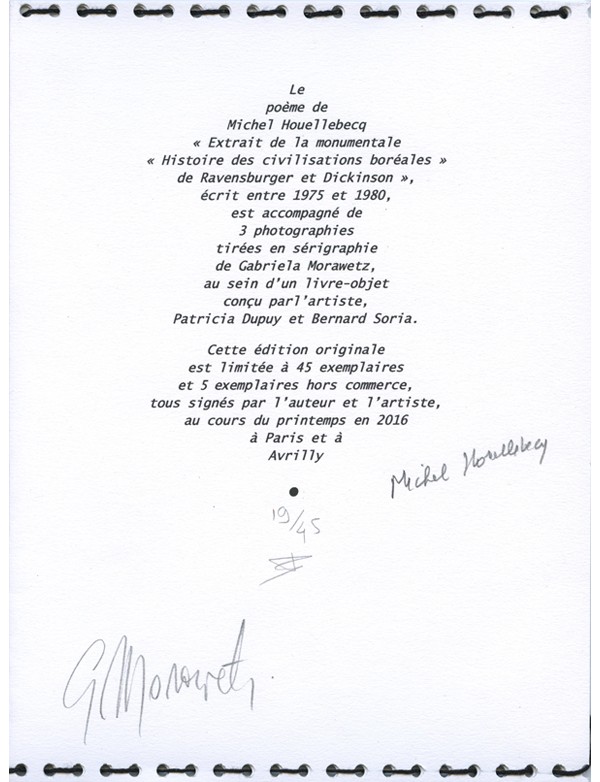 Le
poème de
Michel Houellebecq
« Extrait de la monumentale
« Histoire des civilisations boréales »
de Ravensburger et Dickinson »,
écrit entre 1975 et 1980,
est accompagné de
3 photographies
tirées en sérigraphie
de Gabriela Morawetz,
au sein d'un livre-objet
conçu parl'artiste,
Patricia Dupuy et Bernard Soria.
Cette édition originale
est limitée à 45 exemplaires
et 5 exemplaires hors commerce,
tous signés par l'auteur et l'artiste,
au cours du printemps en 2016
à Paris et à
Avrilly
Michel Houellebecq
19/45
G Morawetz